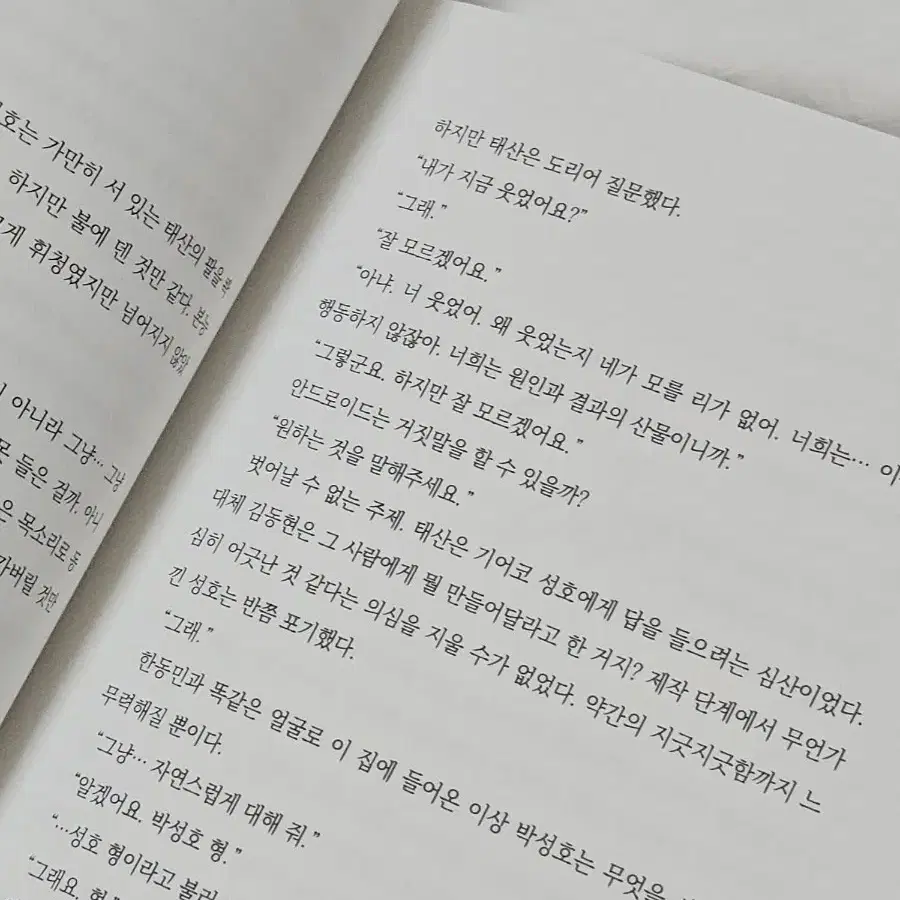 호는 가만히 서 있는 태산의 팔을 콱
하지만 불에 덴 것만 같다. 본능
게 휘청였지만 넘어지지 않았
아니라 그냥… 그냥
못 들은 걸까. 아니
은 목소리로 동
가버릴 것만
하지만 태산은 도리어 질문했다.
“내가 지금 웃었어요?”
“그래.”
“잘 모르겠어요.”
“아냐. 너 웃었어. 왜 웃었는지 네가 모를 리가 없어. 너희는… 이
행동하지 않잖아. 너희는 원인과 결과의 산물이니까.”
“그렇군요. 하지만 잘 모르겠어요.”
안드로이드는 거짓말을 할 수 있을까?
“원하는 것을 말해주세요.”
벗어날 수 없는 주제. 태산은 기어코 성호에게 답을 들으려는 심산이었다.
대체 김동현은 그 사람에게 뭘 만들어달라고 한 거지? 제작 단계에서 무언가
심히 어긋난 것 같다는 의심을 지울 수가 없었다. 약간의 지긋지긋함까지 느
낀 성호는 반쯤 포기했다.
“그래.”
한동민과 똑같은 얼굴로 이 집에 들어온 이상 박성호는 무엇을
무력해질 뿐이다.
“그냥… 자연스럽게 대해 줘.”
“알겠어요. 박성호 형.”
“…성호 형이라고 불러
“그래요. 형.”